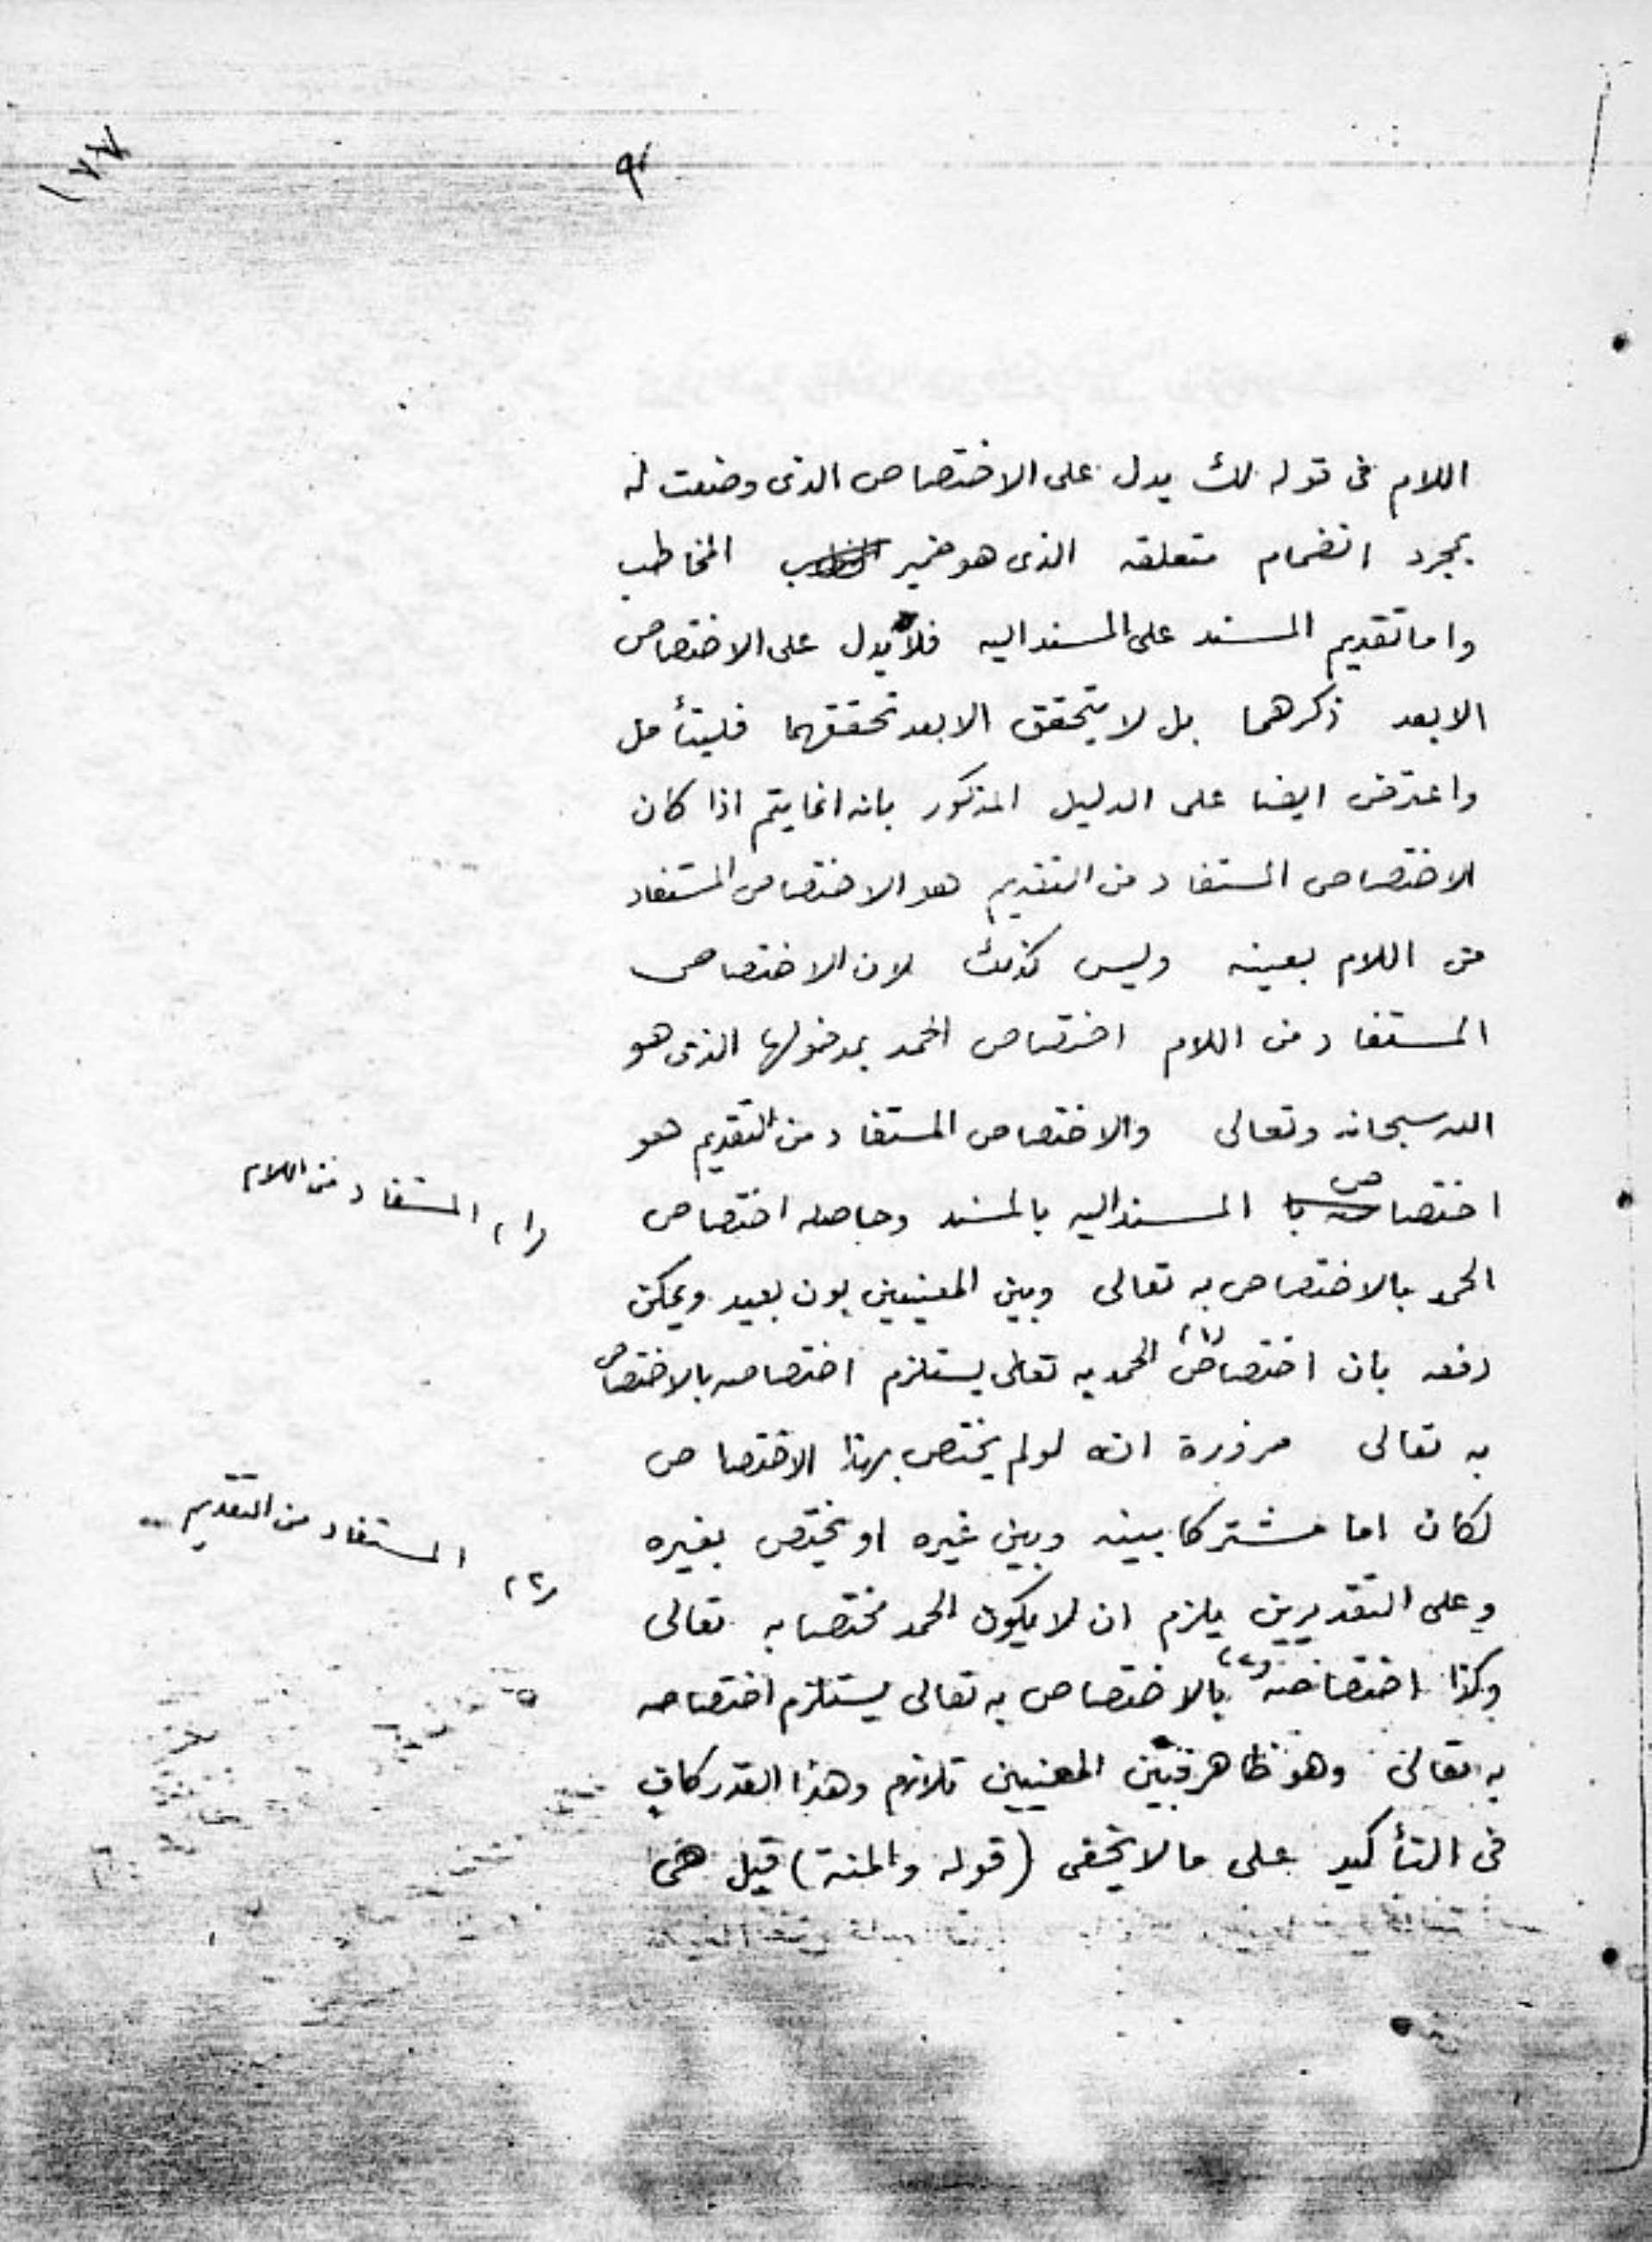 ١٧٧
٩
اللام فى قوله لك يدل على الاختصاص الذى وضعت له
بمجرد انضمام متعلقه الذى هو ضمير المخاطب
واما تقديم المسند على المسند اليه فلا يدل على الاختصاص
الا بعد ذكرهما بل لا يتحقق الا بعد تحققهما فليتأمل
واعترض ايضا على الدليل المذكور بانه انما يتم اذا كان
الاختصاص المستفاد من التقديم هو الاختصاص المستفاد
من اللام بعينه وليس كذلك لان الاختصاص
المستفاد من اللام اختصاص الحمد بمدخولها الذى هو
الله سبحانه وتعالى والاختصاص المستفاد من التقديم هو
اختصاص المسند اليه بالمسند وحاصله اختصاص
الحمد بالاختصاص به تعالى وبين المعنيين بون بعيد ويمكن
دفعه بان اختصاص (١) الحمد به تعالى يستلزم اختصاصه بالاختصاص
به تعالى ضرورة انه لو لم يختص بهذا الاختصاص
لكان اما مشتركا بينه وبين غيره او يختص بغيره
وعلى التقديرين يلزم ان لا يكون الحمد مختصا به تعالى
وكذا اختصاصه (٢) بالاختصاص به تعالى يستلزم اختصاصه
به تعالى وهو ظاهر فبين المعنيين تلازم وهذا القدر كاف
فى التأكيد على ما لا يخفى (قوله والمنة) قيل هى
(١) المستفاد من اللام
(٢) المستفاد من التقديم